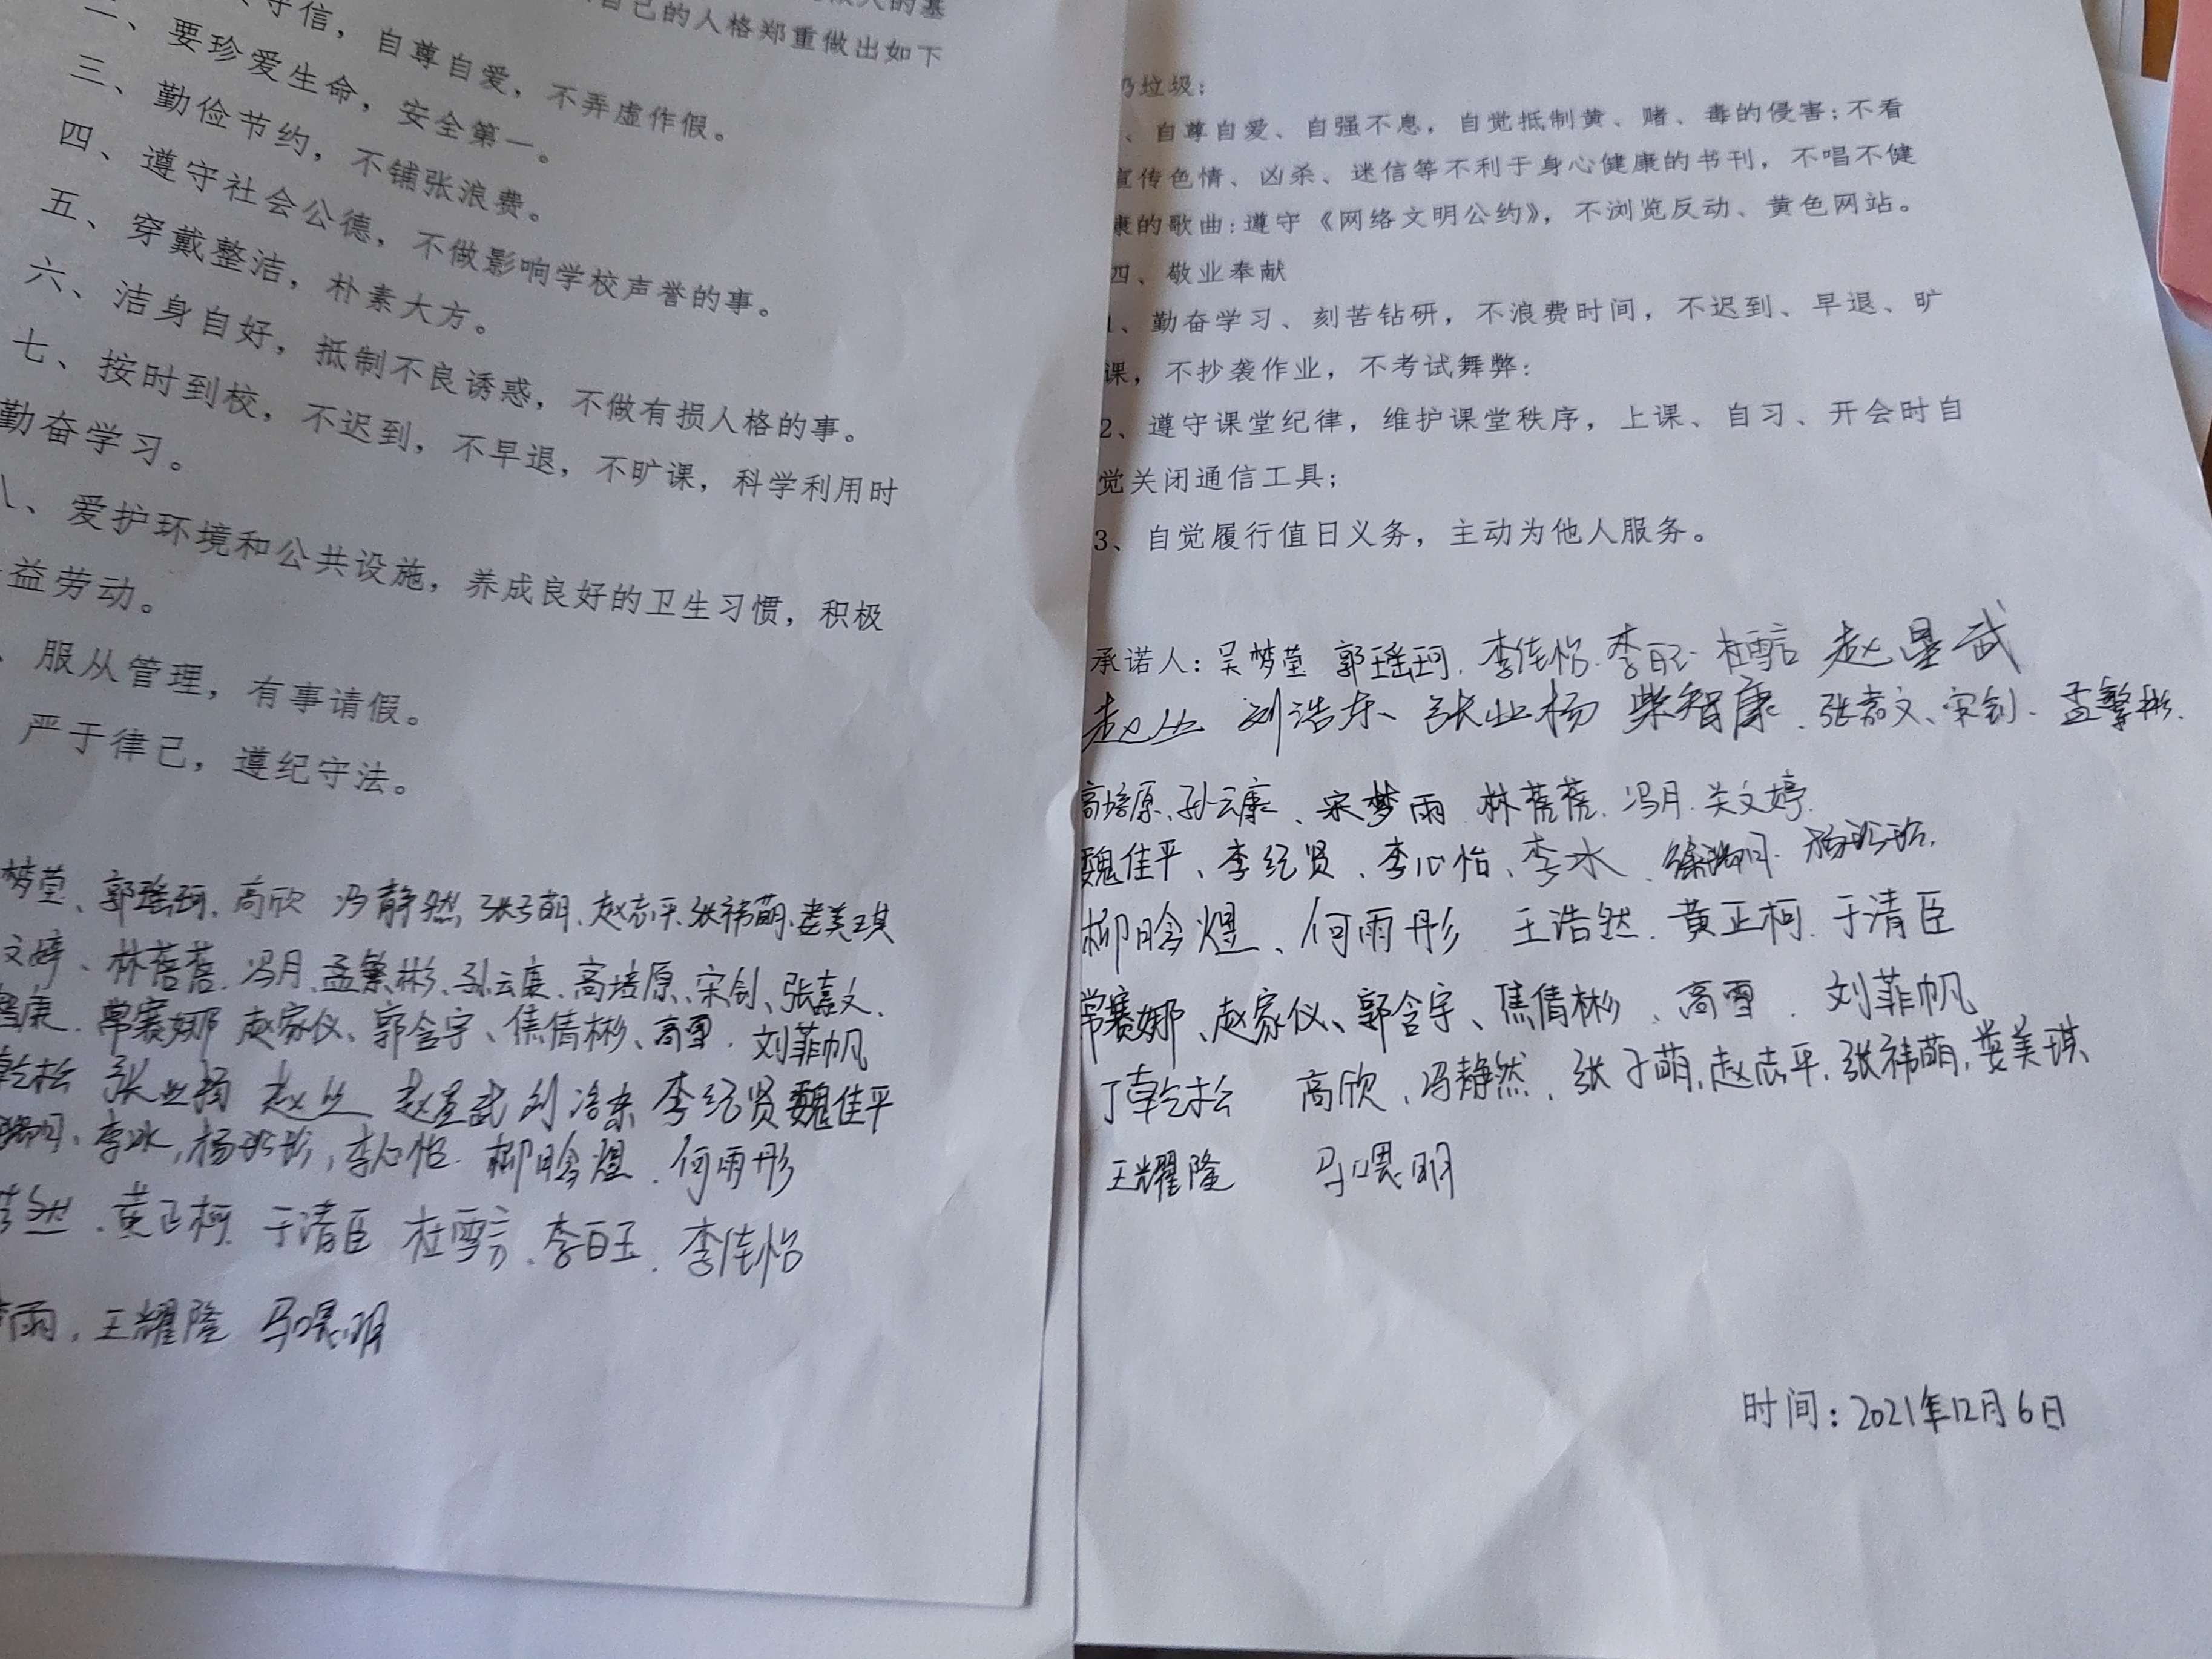 的基
自己的人格郑重做出如下
守信，自尊自爱，不弄虚作假。
二、要珍爱生命，安全第一。
三、勤俭节约，不铺张浪费。
四、遵守社会公德，不做影响学校声誉的事。
五、穿戴整洁，朴素大方。
六、洁身自好，抵制不良诱惑，不做有损人格的事。
七、按时到校，不迟到，不早退，不旷课，科学利用时
勤奋学习。
八、爱护环境和公共设施，养成良好的卫生习惯，积极
益劳动。
、服从管理，有事请假。
严于律己，遵纪守法。
梦莹、郭瑶珂、高欣 冯静然、张子萌、赵志平、张祎萌、娄美琪
文婷、林蓓蓓、冯月、孟繁彬、孙云康、高培原、宋钊、张嘉文、
智康、常赛娜 赵家仪、郭含宇、焦倩彬、高雪、刘菲帆
乾松 张业杨 赵丛 赵星武 刘浩东 李纪贤 魏佳平
李冰，李心怡、柳晗煜、何雨彤
然、黄正柯、于清臣 杜雪言、李日玉、李佳怡
雨、王耀隆 马晨明
扔垃圾;
、自尊自爱、自强不息，自觉抵制黄、赌、毒的侵害;不看
宣传色情、凶杀、迷信等不利于身心健康的书刊，不唱不健
康的歌曲:遵守《网络文明公约》，不浏览反动、黄色网站。
四、敬业奉献
1、勤奋学习、刻苦钻研，不浪费时间，不迟到、早退、旷
课，不抄袭作业，不考试舞弊:
2、遵守课堂纪律，维护课堂秩序，上课、自习、开会时自
觉关闭通信工具;
3、自觉履行值日义务，主动为他人服务。
承诺人: 吴梦莹 郭瑶珂、李佳怡、李日玉 杜雪言 赵星武
赵丛 刘浩东、张业杨 柴智康、张嘉文、宋钊、孟繁彬、
高培原、孙云康、宋梦雨 林蓓蓓、冯月、关文婷
魏佳平、李纪贤、李心怡、李冰、
柳晗煜、何雨彤 王浩然、黄正柯、于清臣
常赛娜、赵家仪、郭含宇、焦倩彬、高雪、刘菲帆
丁乾松 高欣、冯静然、张子萌、赵志平、张祎萌、娄美琪
王耀隆 马晨明
时间：2021年12月6日